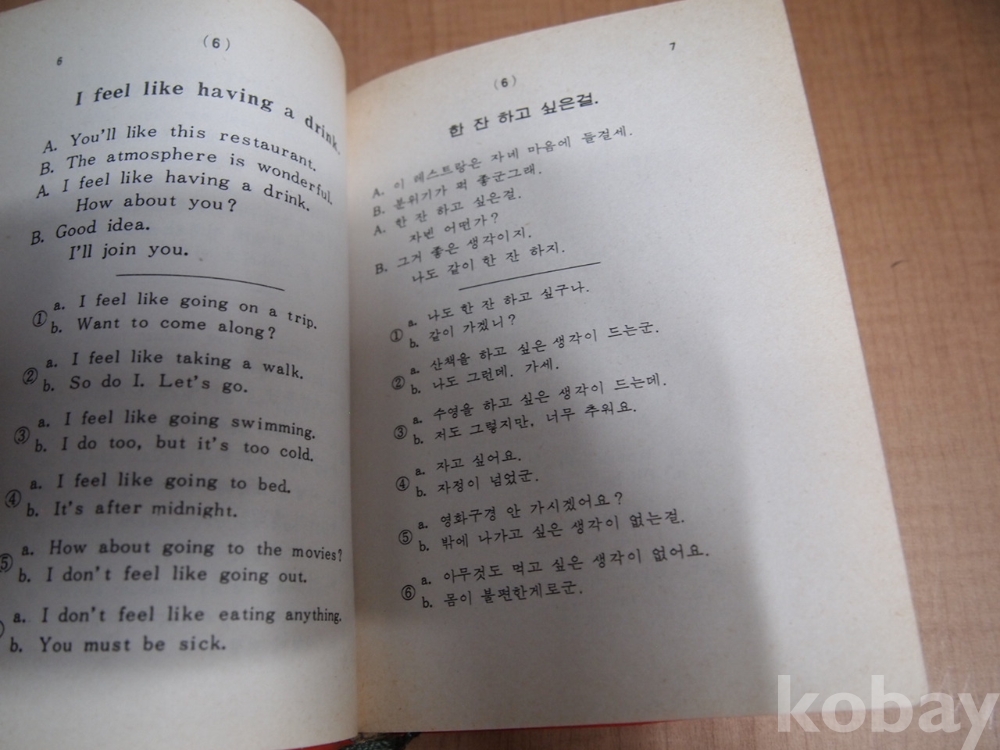 6
(6)
I feel like having a drink.
A. You'll like this restaurant.
B. The atmosphere is wonderful.
A. I feel like having a drink.
How about you?
B. Good idea.
I'll join you.
① a. I feel like going on a trip.
b. Want to come along?
② a. I feel like taking a walk.
b. So do I. Let's go.
③ a. I feel like going swimming.
b. I do too, but it's too cold.
④ a. I feel like going to bed.
b. It's after midnight.
⑤ a. How about going to the movies?
b. I don't feel like going out.
a. I don't feel like eating anything.
b. You must be sick.
7
(6)
한 잔 하고 싶은걸.
A. 이 레스트랑은 자네 마음에 들걸세.
B. 분위기가 퍽 좋군그래.
A. 한 잔 하고 싶은걸.
자넨 어떤가?
B. 그거 좋은 생각이지.
나도 같이 한 잔 하지.
① a. 나도 한 잔 하고 싶구나.
b. 같이 가겠니?
② a. 산책을 하고 싶은 생각이 드는군.
b. 나도 그런데. 가세.
③ a. 수영을 하고 싶은 생각이 드는데.
b. 저도 그렇지만, 너무 추워요.
④ a. 자고 싶어요.
b. 자정이 넘었군.
⑤ a. 영화구경 안 가시겠어요?
b. 밖에 나가고 싶은 생각이 없는걸.
⑥ a. 아무것도 먹고 싶은 생각이 없어요.
b. 몸이 불편한게로군.
kobay